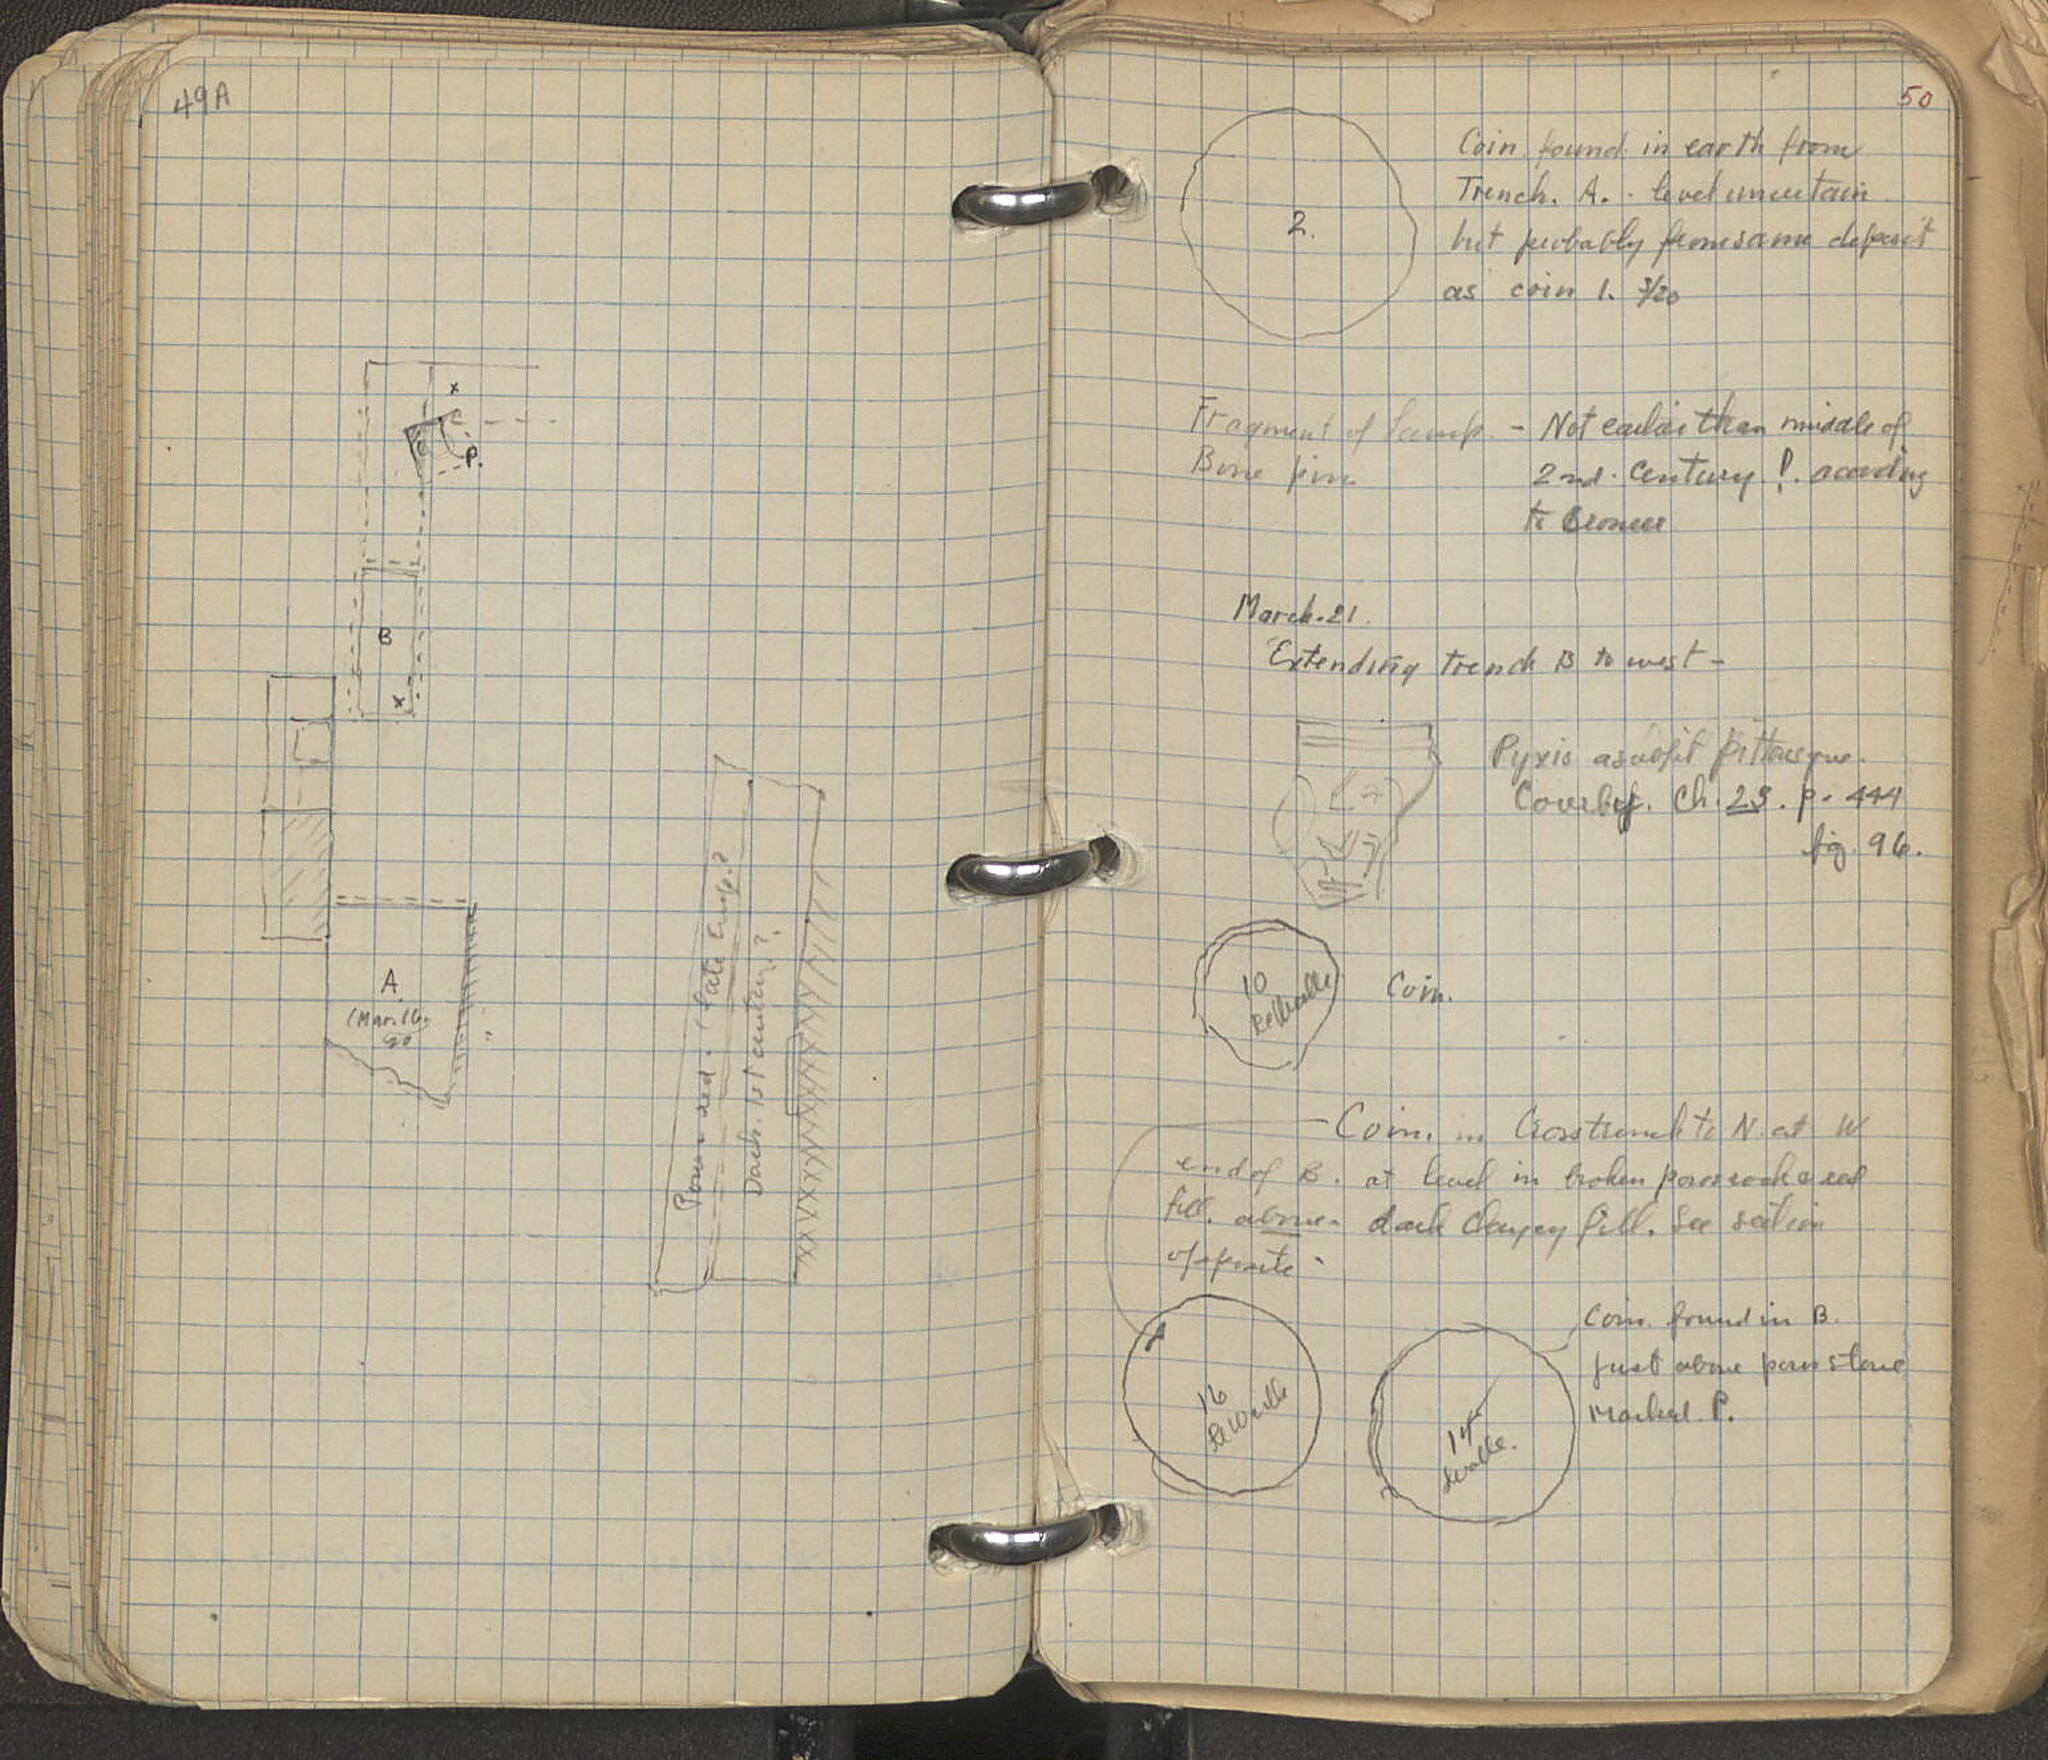 49A
x
P.
B
x
A.
(Mar. 16-
20
Poros + red. (late Emp.?
Dark. 1st century?
50
2.
Coin found in earth from
Trench. A. - level uncertain
but probably from same deposit
as coin 1. 3/20
Fragment of Lamp. - Not earlier than middle of
Bone pin
2nd. Century !. according
to Broneer
March. 21.
Extending trench B to west -
Pyxis
Courby. Ch. 23. p. 444
fig. 96.
10
Coin.
Coin. in Crosstrench to N. at W
end of B. at level in broken poros rock & red
fill. above dark clayey fill. See section
opposite -
16
14
Coin found in B.
just above poros stone
Marked P.